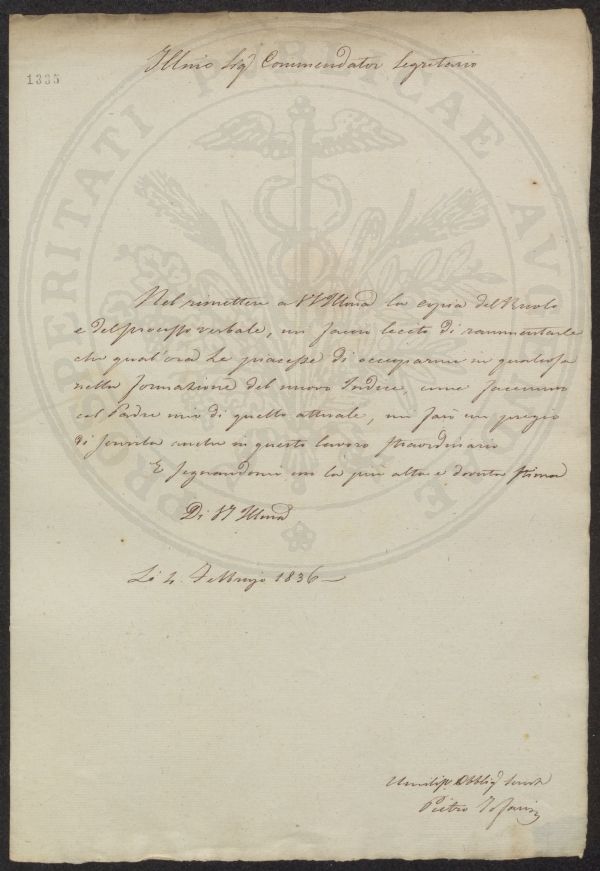 1335
Illmo Sig Commendator Segretario
Nel rimettere a VS Illma la copia del Ruolo
e del processo verbale, mi faccio lecito di rammentarle
che qual'ora Le piacesse di occuparmi in qualcosa
nella formazione del nuovo Indice, come facemmo
col Padre mio di quello attuale, mi farò un pregio
di servirla anche in questo lavoro straordinario
E segnandomi con la più alta e dovuta stima
Di VS Illma
Li 4. Febbrajo 1836
PROSPERITATI PUBLICAE AUGENDAE
Umiliss Obblig Serv
Pietro